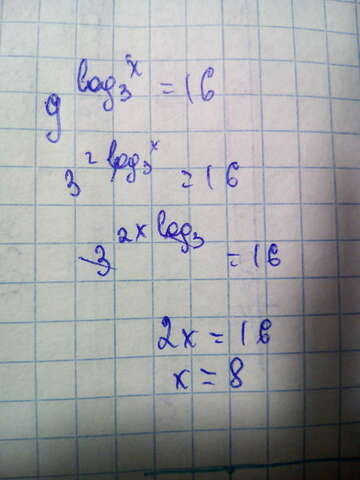 9^log₃^x = 16
3^2log₃^x = 16
3^2x log₃ = 16
2x = 16
x = 8